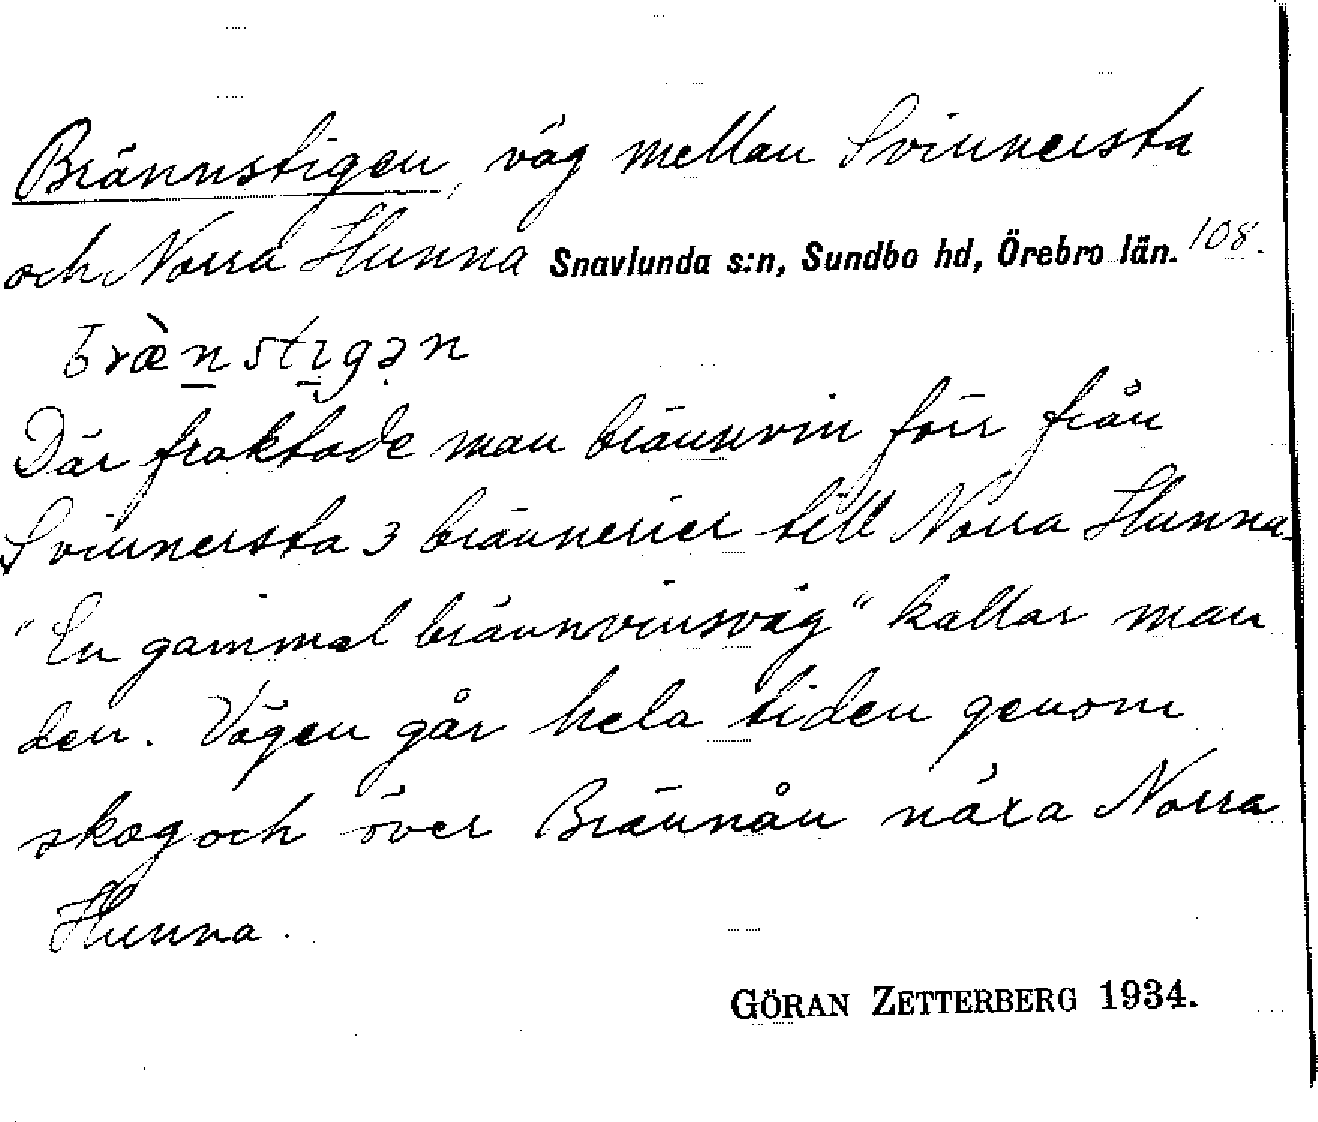 Brännstigen, väg mellan Svinnersta
och Norra Hunna Snavlunda s:n, Sundbo hd, Örebro län. 108.
bræ̀n̲sti̲gən
Där fraktade man brännvin förr från
Svinnersta 3 brännerier till Norra Hunna.
"En gammal brännvinsväg" kallar man
den. Vägen går hela tiden genom
skog och över Brännån nära Norra
Hunna.
GÖRAN ZETTERBERG 1934.